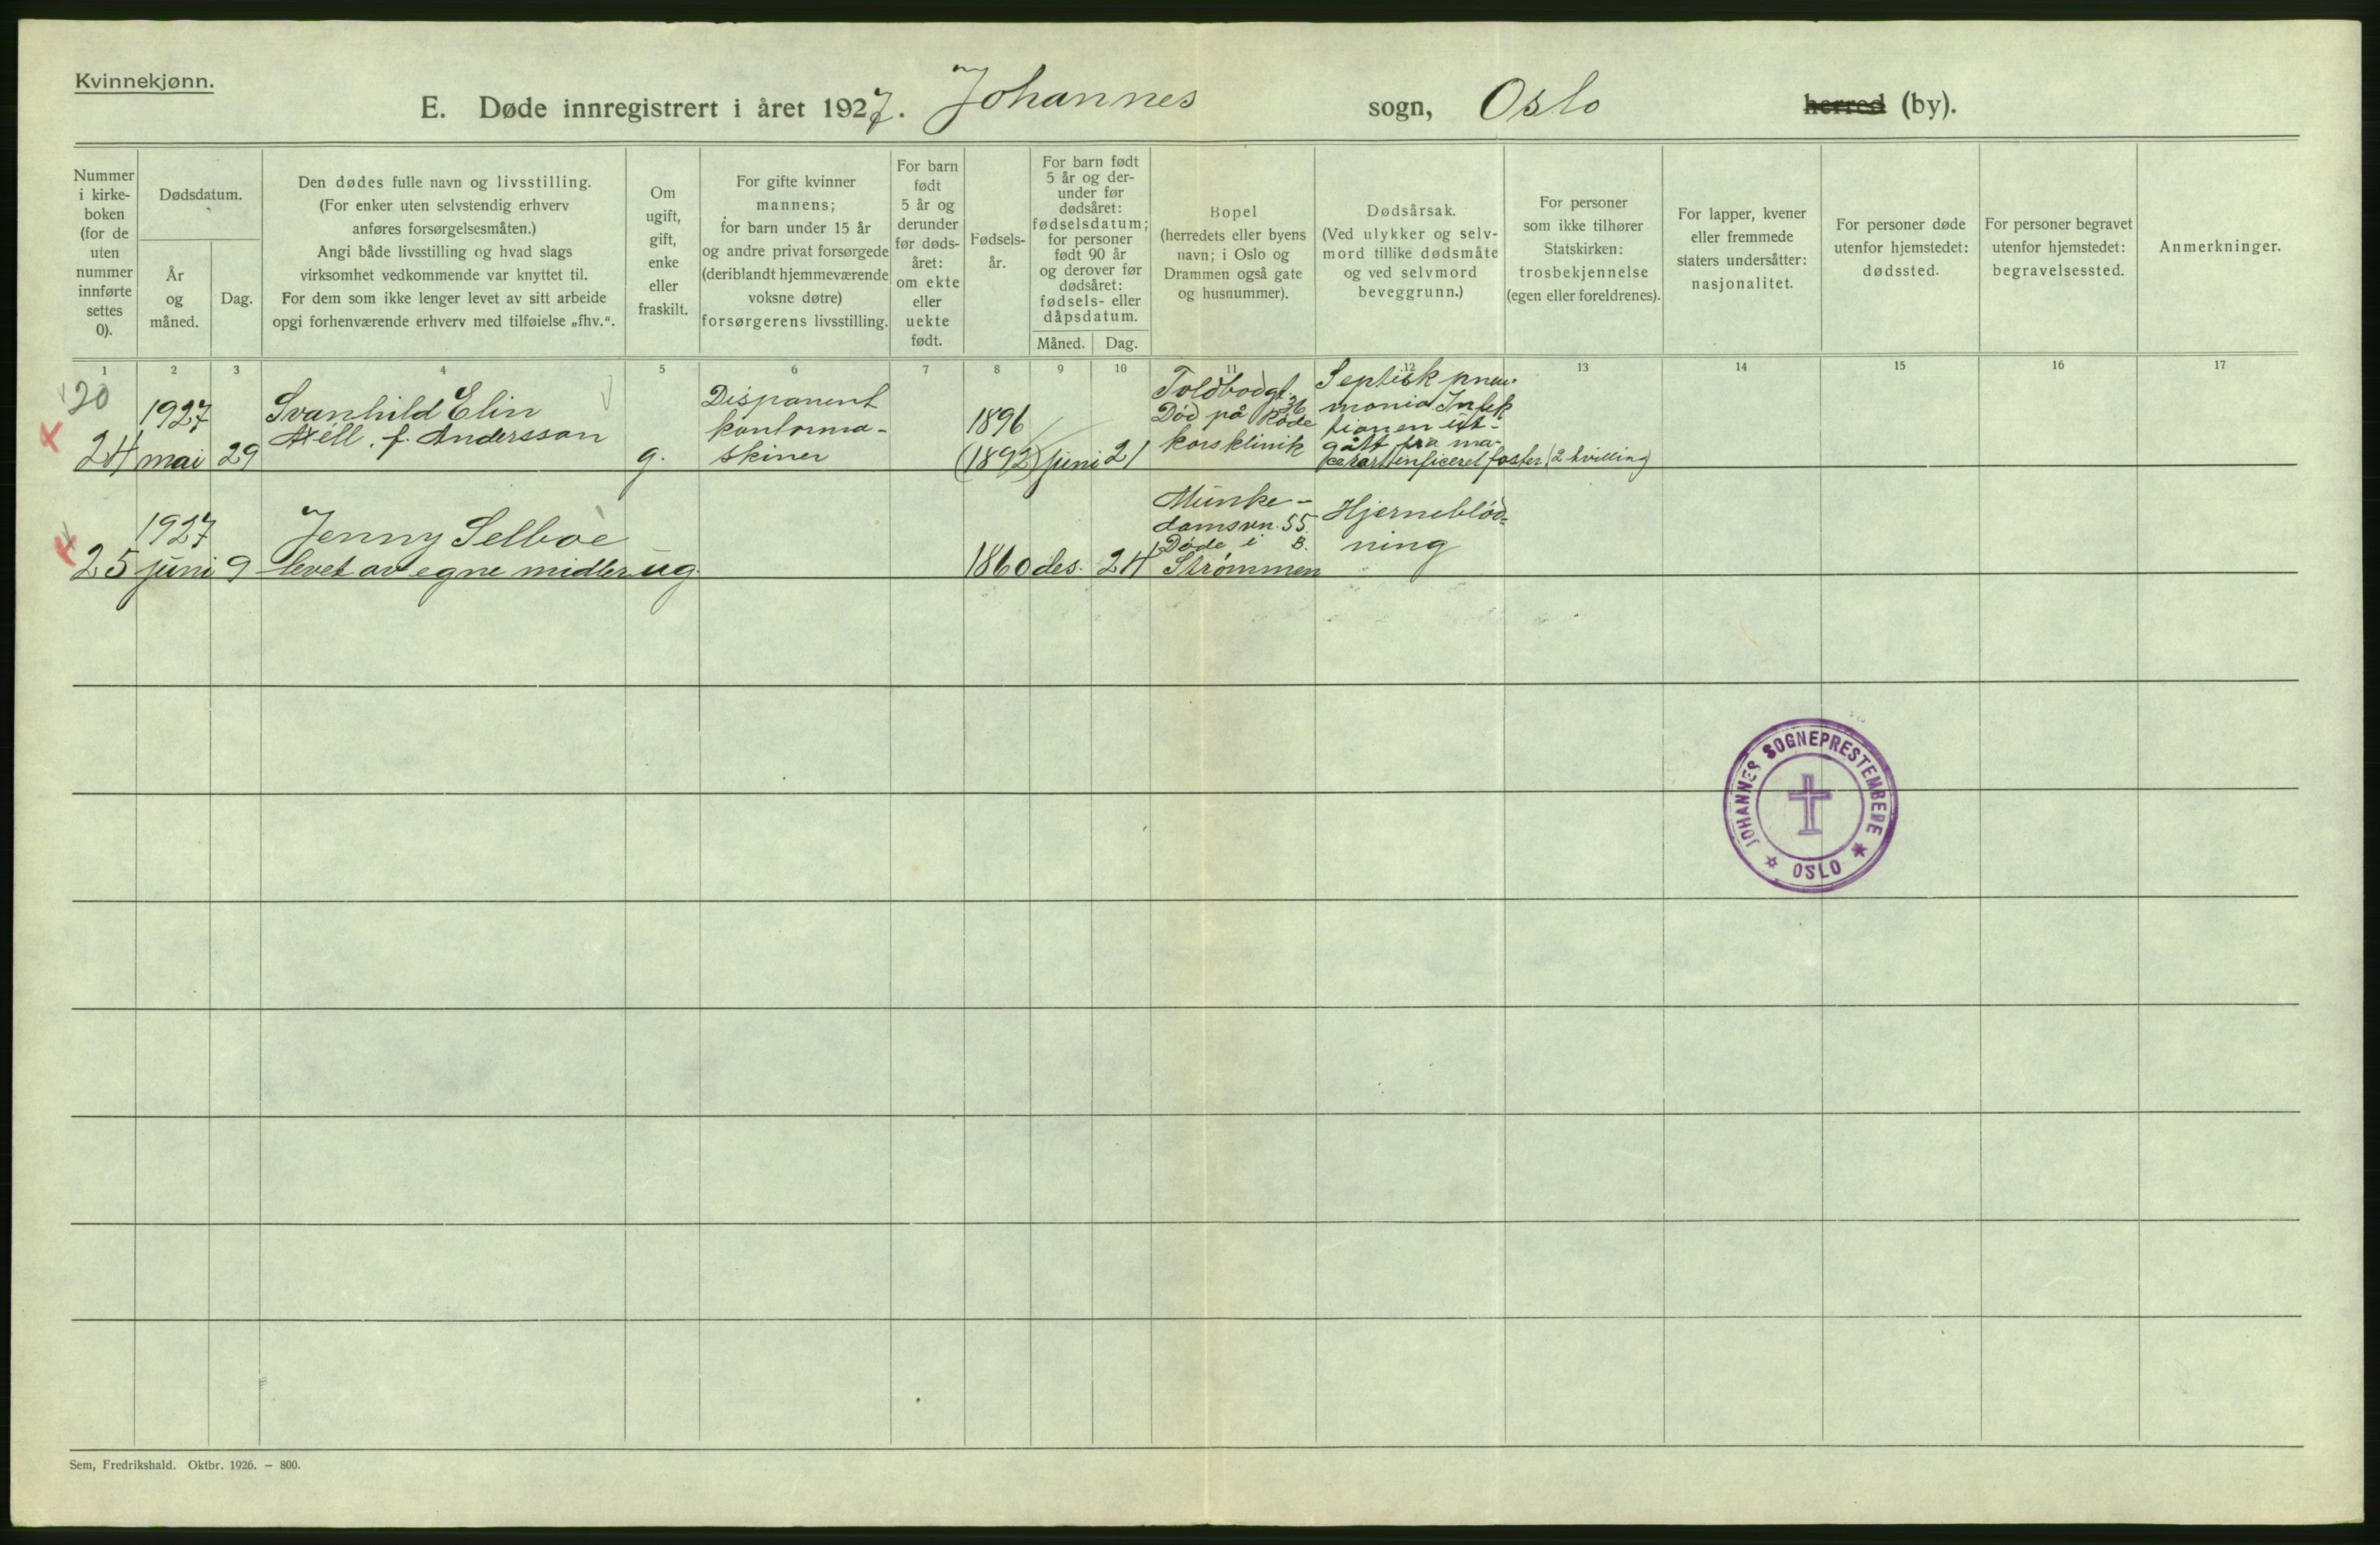 Kvinnekjønn.
E. Døde innregistrert i året 1927. Johannes sogn, Oslo herred (by).
Nummer
i kirke-
boken
(for de
uten
nummer
innførte
settes
0).
Dødsdatum.
År
og
måned.
Dag.
Den dødes fulle navn og livsstilling.
(For enker uten selvstendig erhverv
anføres forsørgelsesmåten.)
Angi både livsstilling og hvad slags
virksomhet vedkommende var knyttet til.
For dem som ikke lenger levet av sitt arbeide
opgi forhenværende erhverv med tilføielse „fhv.“.
Om
ugift,
gift,
enke
eller
fraskilt.
For gifte kvinner
mannens;
for barn under 15 år
og andre privat forsørgede
(deriblandt hjemmeværende
voksne døtre)
forsørgerens livsstilling.
For barn
født
5 år og
derunder
før døds-
året:
om ekte
eller
uekte
født.
Fødsels-
år.
For barn født
5 år og der-
under før
dødsåret:
fødselsdatum;
for personer
født 90 år
og derover før
dødsåret:
fødsels- eller
dåpsdatum.
Måned.
Dag.
Bopel
(herredets eller byens
navn; i Oslo og
Drammen også gate
og husnummer).
Dødsårsak.
(Ved ulykker og selv-
mord tillike dødsmåte
og ved selvmord
beveggrunn.)
For personer
som ikke tilhører
Statskirken:
trosbekjennelse
(egen eller foreldrenes).
For lapper, kvener
eller fremmede
staters undersåtter:
nasjonalitet.
For personer døde
utenfor hjemstedet:
dødssted.
For personer begravet
utenfor hjemstedet:
begravelsessted.
Anmerkninger.
1 2 3 4 5 6 7 8 9 10 11 12 13 14 15 16 17
20
24
1927
mai
29
Svanhild Elin
Axéll, f. Andersson
g.
Disponent
kontorma-
skiner
1896
(1892)
juni
21
Toldbodgt.
36
Død på Røde
kors klinik
Septisk pneu-
monia. Infek
tionen ut-
gått fra ma-
cerert inficeret foster (2 tvilling)
25
1927
juni
9
Jenny Selboe
levet av egne midler
ug.
1860
des.
24
Munke-
damsvn. 55
B.
Døde i
Strømmen
Hjerneblød-
ning
JOHANNES SOGNEPRESTEMBEDE
OSLO
Sem, Fredrikshald. Oktbr. 1926. – 800.